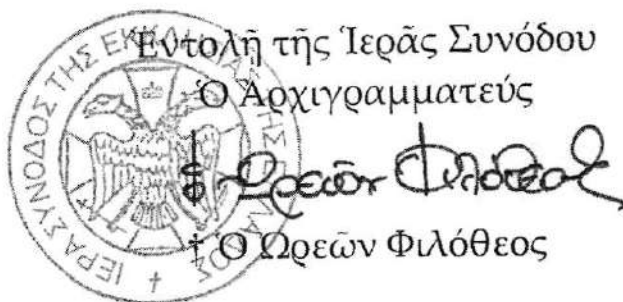 Ἐντολῇ τῆς Ἱερᾶς Συνόδου
Ὁ Ἀρχιγραμματεύς
‡ Ὠρεῶν Φιλόθεος
‡ Ὁ Ὠρεῶν Φιλόθεος
ΙΕΡΑ ΣΥΝΟΔΟΣ ΤΗΣ ΕΚΚΛΗΣΙΑΣ ΤΗΣ ΕΛΛΑΔΟΣ